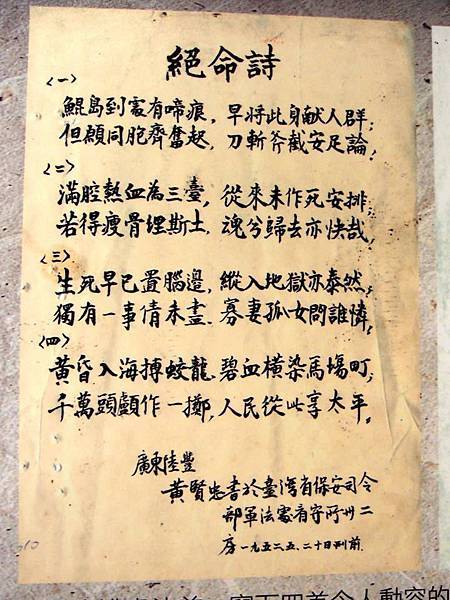 絕命詩
<一>
鯤島到處有啼痕，早將此身献人群；
但願同胞齊奮起，刀斬斧截安足論！
<二>
滿腔熱血為三臺，從來未作死安排；
若得瘦骨埋斯土，魂兮歸去亦快哉，
<三>
生死早已置腦邊，縱入地獄亦泰然；
獨有一事情未盡．寡妻孤女問誰憐，
<四>
黃昏入海搏蛟龍．碧血橫染馬場町；
千萬頭顱作一擲，人民從此享太平。
廣東陸豐
黃賢忠書於臺灣省保安司令
部軍法處看守所卅二
房一九五二、五、二十日刑前